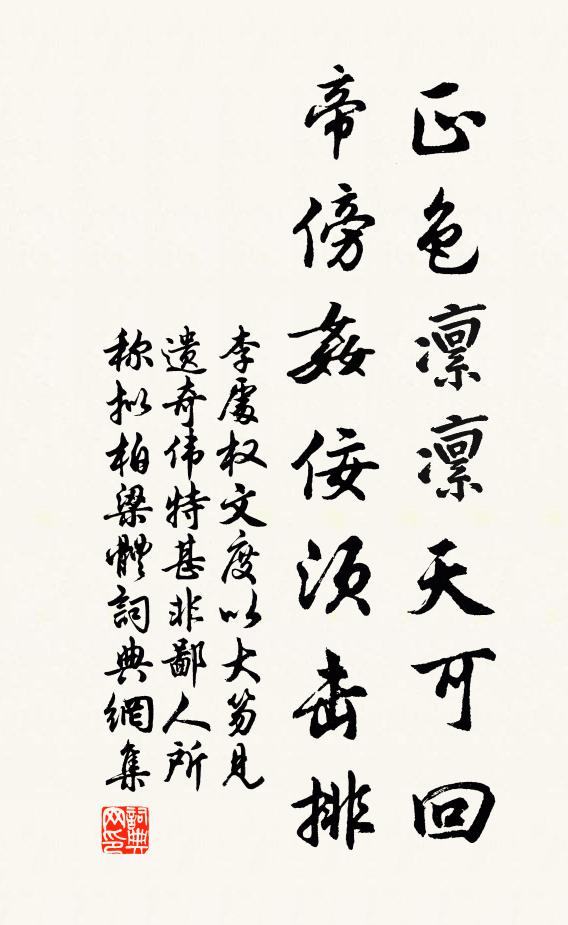 正色凛凛天可回
帝傍姦佞須击排
李處权文度以大笏見
遗奇伟特甚非鄙人所
称拟柏梁體詞典網集
詞典
网印